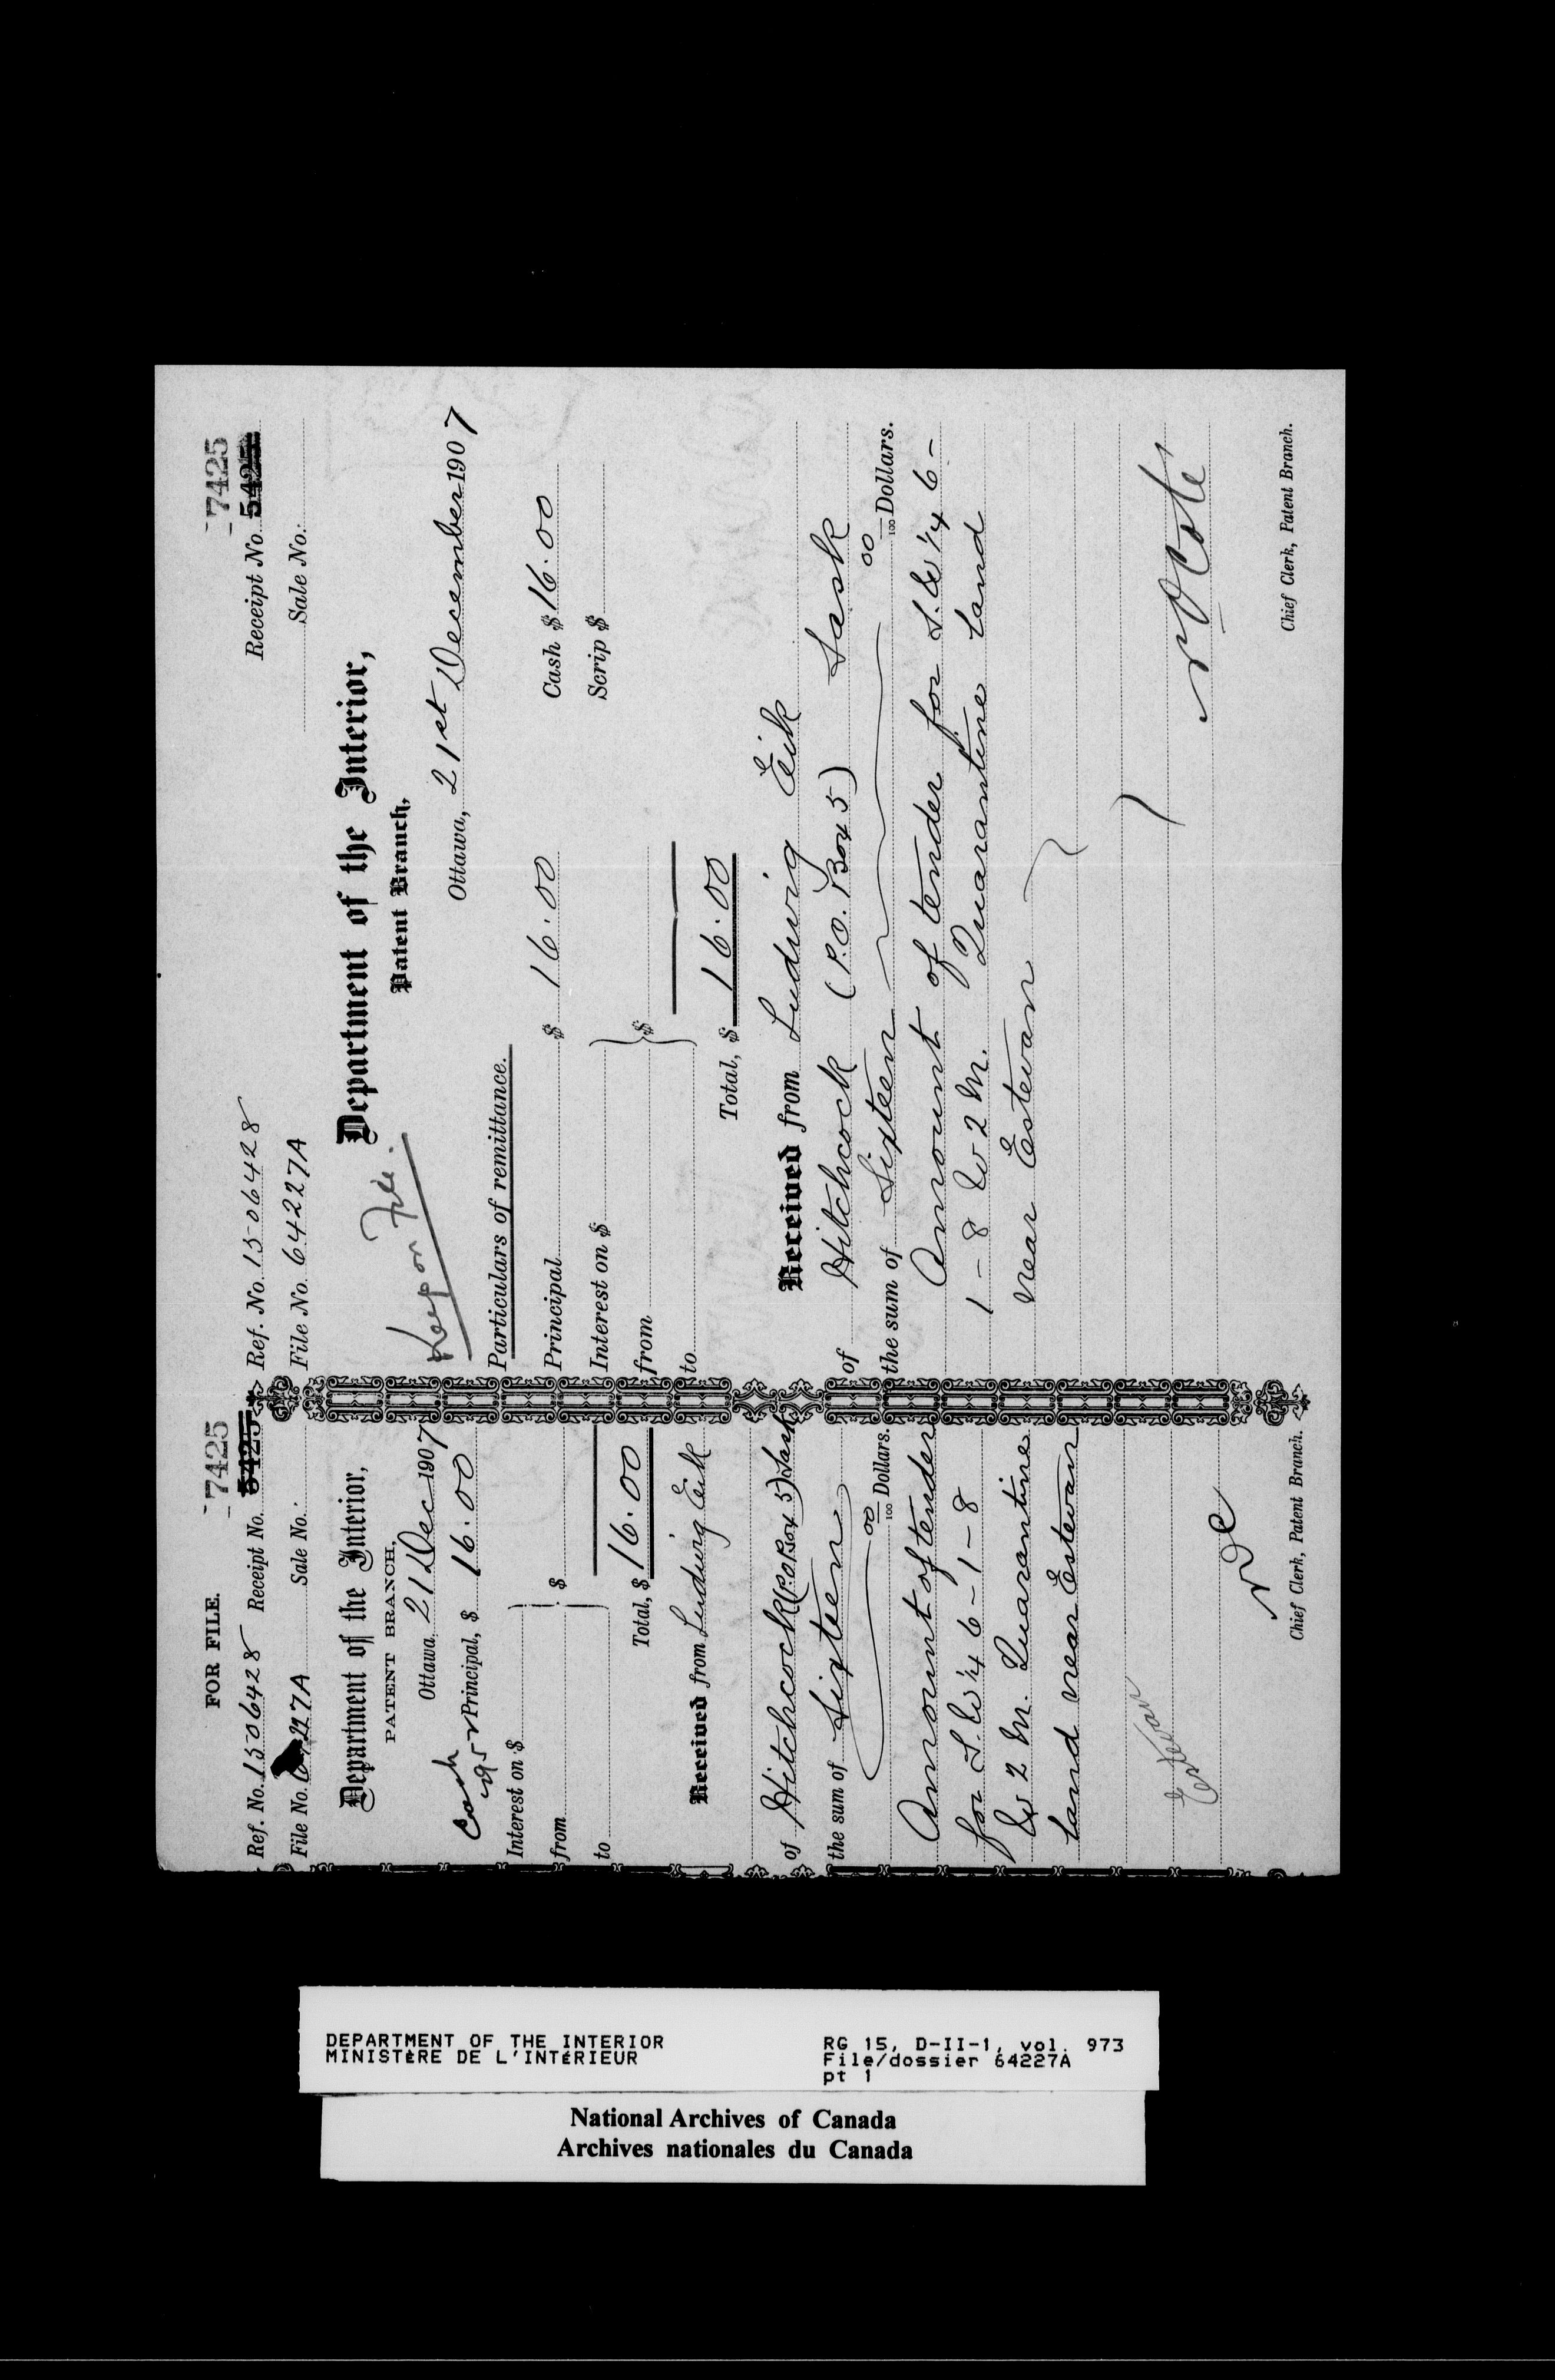 FOR FILE.
7425
Ref. No. 1506428 Receipt No. 5425
File No. 64227A Sale No.
Department of the Interior,
PATENT BRANCH,
Ottawa 21 Dec 1907
Cash
Principal, $ 16.00
Interest on $
from $
to
Total, $ 16.00
Received from Ludwig Eik
of Hitchcock (P.O. Box 5) Sask
the sum of Sixteen 00/100 Dollars.
Amount of tender
for S.W 1/4 6-1-8
W 2 M. Quarantine
land near Estevan
Estevan
Chief Clerk, Patent Branch.
7425
Ref. No. 1506428 Receipt No. 5425
File No. 64227A Sale No.
Keep on File.
Department of the Interior,
Patent Branch,
Ottawa, 21st December 1907
Particulars of remittance.
Principal $ 16.00 Cash $ 16.00
Interest on $ Scrip $
from $
to
Total, $ 16.00
Received from Ludwig Eik
of Hitchcock (P.O. Box 5) Sask
the sum of Sixteen 00/100 Dollars.
Amount of tender for S.W 1/4 6-
1-8 W 2 M. Quarantine land
near Estevan
N O Coté
Chief Clerk, Patent Branch.
DEPARTMENT OF THE INTERIOR
MINISTÈRE DE L'INTÉRIEUR
RG 15, D-II-1, vol. 973
File/dossier 64227A
pt 1
National Archives of Canada
Archives nationales du Canada